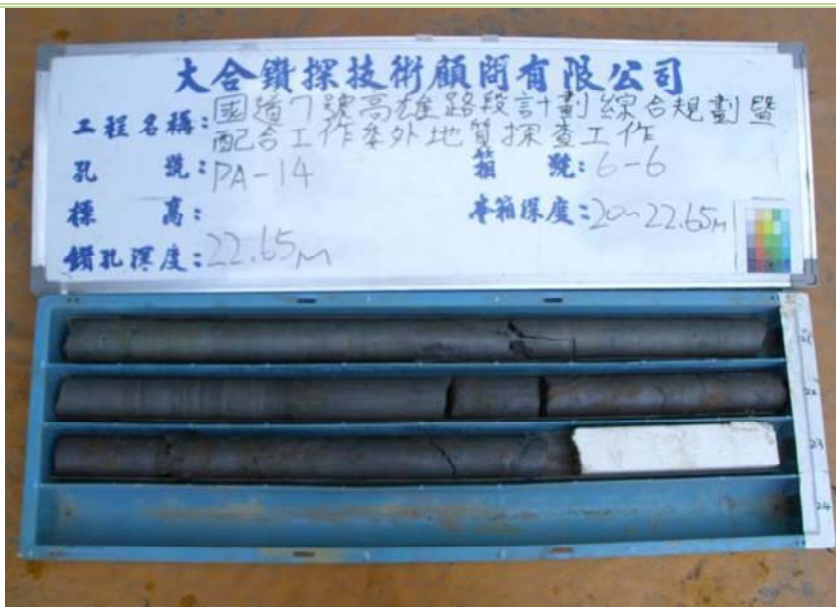 大合鑽探技術顧問有限公司
工程名稱：國道7號高雄路段計劃綜合規劃暨
配合工作委外地質探查工作
孔號：PA-14 箱號：6-6
標高： 本箱深度：20~22.65m
鑽孔深度：22.65m
21
22
23
24